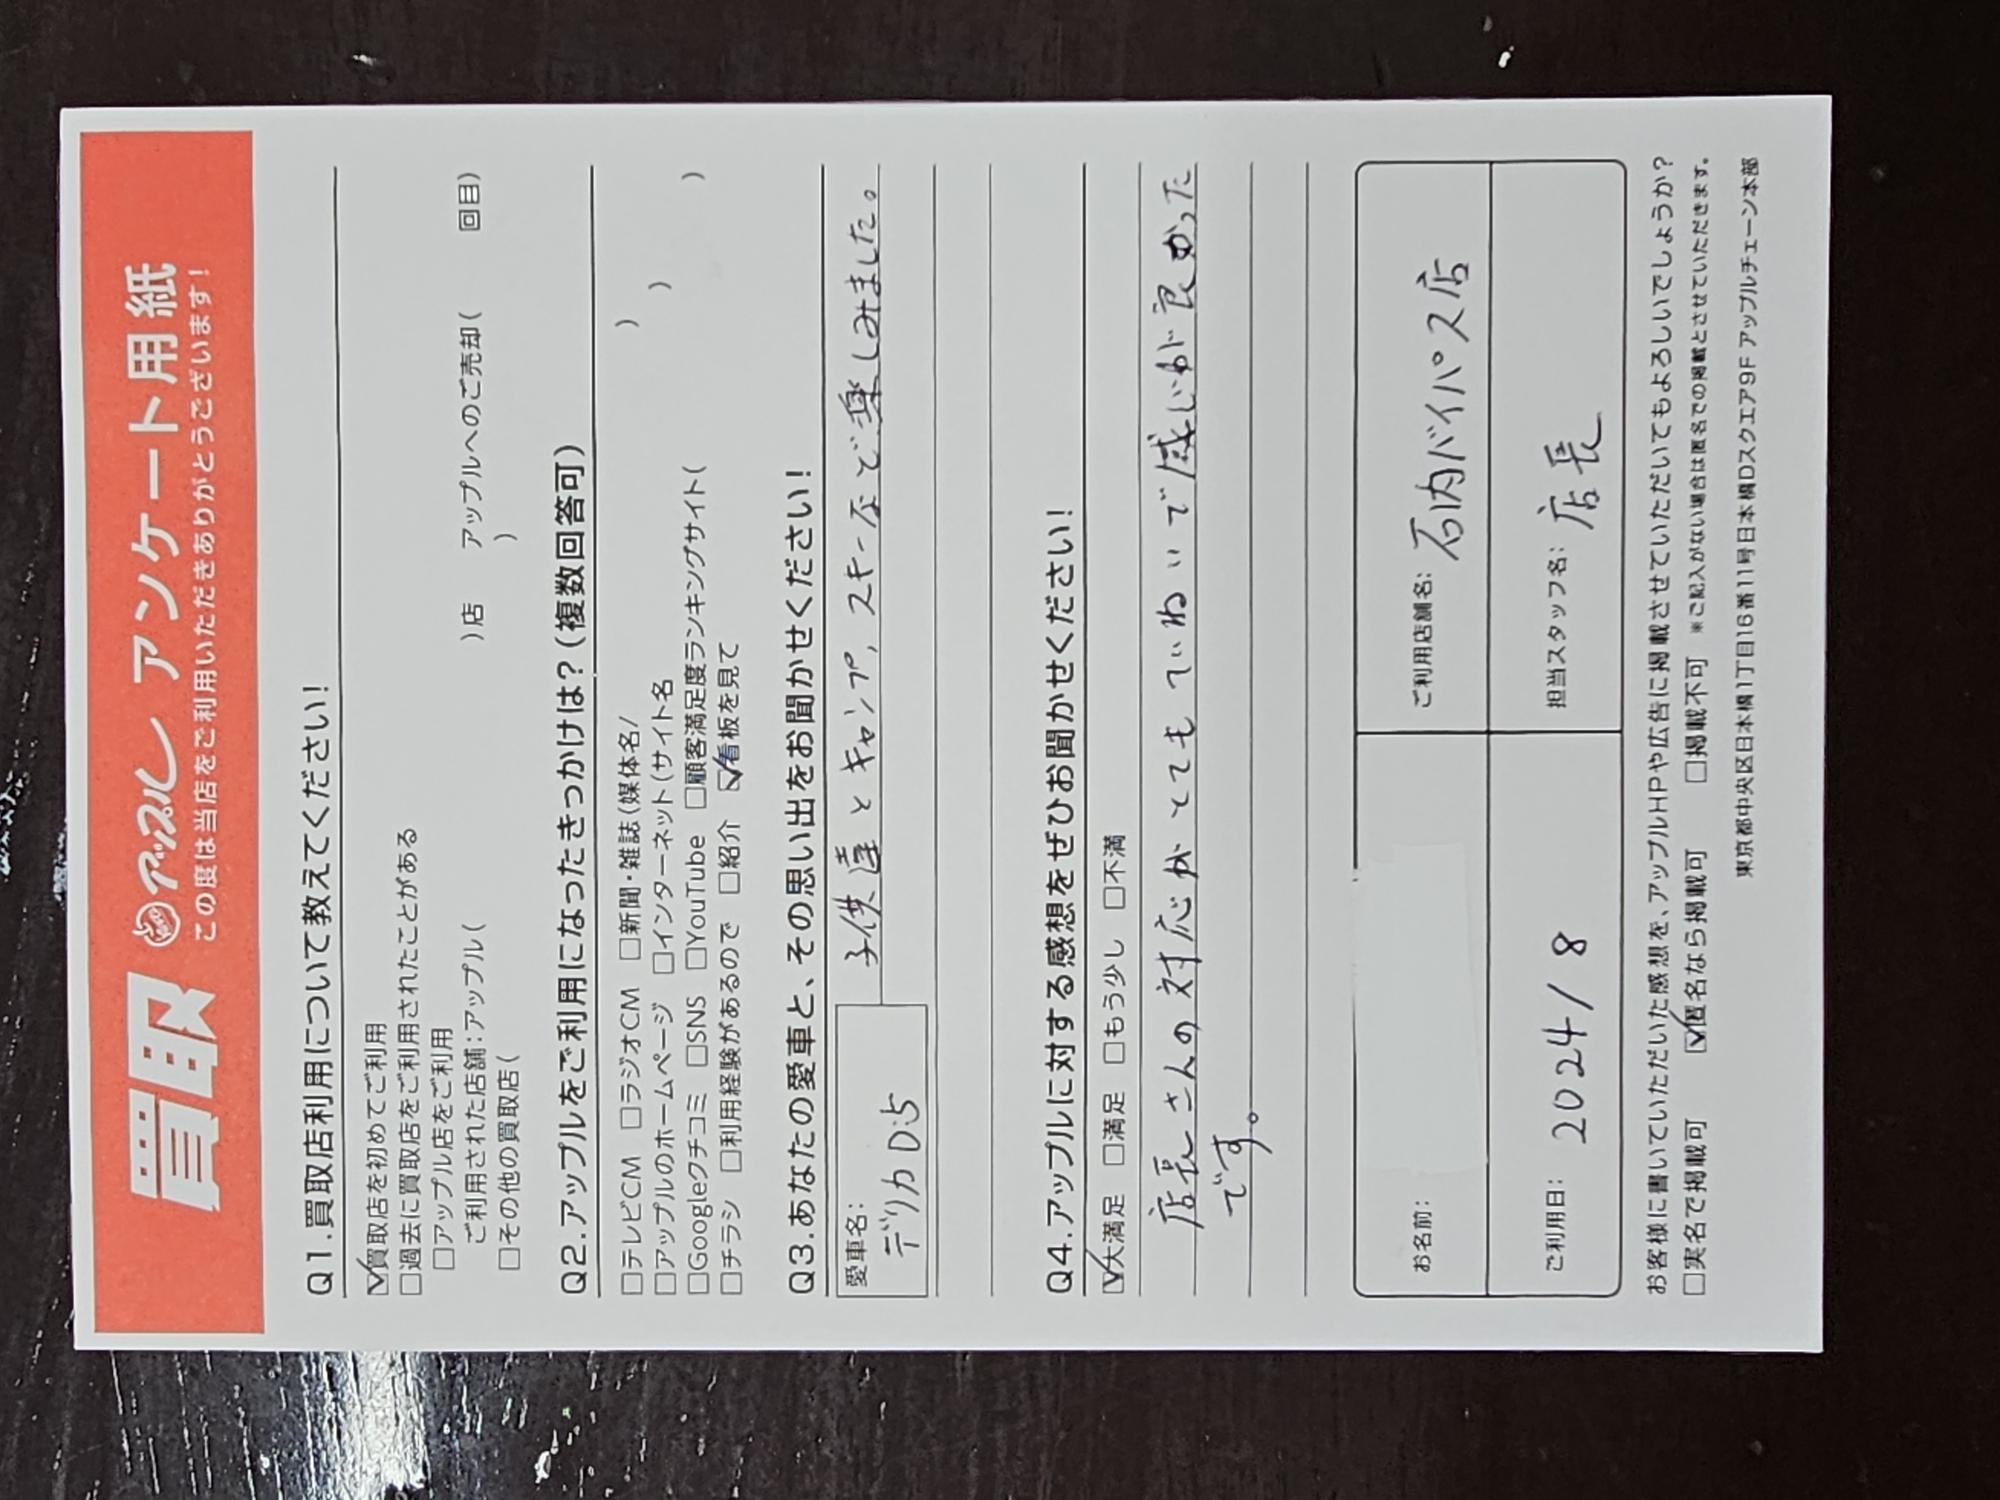 買取 アップル アンケート用紙
この度は当店をご利用いただきありがとうございます!
Q1.買取店利用について教えてください!
☑買取店を初めてご利用
□過去に買取店をご利用されたことがある
□アップル店をご利用
ご利用された店舗:アップル( )店 アップルへのご売却( 回目)
□その他の買取店( )
Q2.アップルをご利用になったきっかけは?(複数回答可)
□テレビCM □ラジオCM □新聞・雑誌(媒体名/ )
□アップルのホームページ □インターネット(サイト名 )
□Googleクチコミ □SNS □YouTube □顧客満足度ランキングサイト( )
□チラシ □利用経験があるので □紹介 ☑看板を見て
Q3.あなたの愛車と、その思い出をお聞かせください!
愛車名:
デリカD:5
子供達とキャンプ、スキーなどで楽しみました。
Q4.アップルに対する感想をぜひお聞かせください!
☑大満足 □満足 □もう少し □不満
店長さんの対応がとてもていねいで感じが良かった
です。
お名前: ご利用店舗名: 石内バイパス店
ご利用日: 2024/8 担当スタッフ名: 店長
お客様に書いていただいた感想を、アップルHPや広告に掲載させていただいてもよろしいでしょうか?
□実名で掲載可 ☑匿名なら掲載可 □掲載不可 ※ご記入がない場合は匿名での掲載とさせていただきます。
東京都中央区日本橋1丁目16番11号日本橋Dスクエア9F アップルチェーン本部